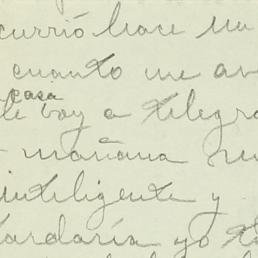 currió hace un
cuanto me av
casa
le voy a telegra
mañana
inteligente y
tardaría yo